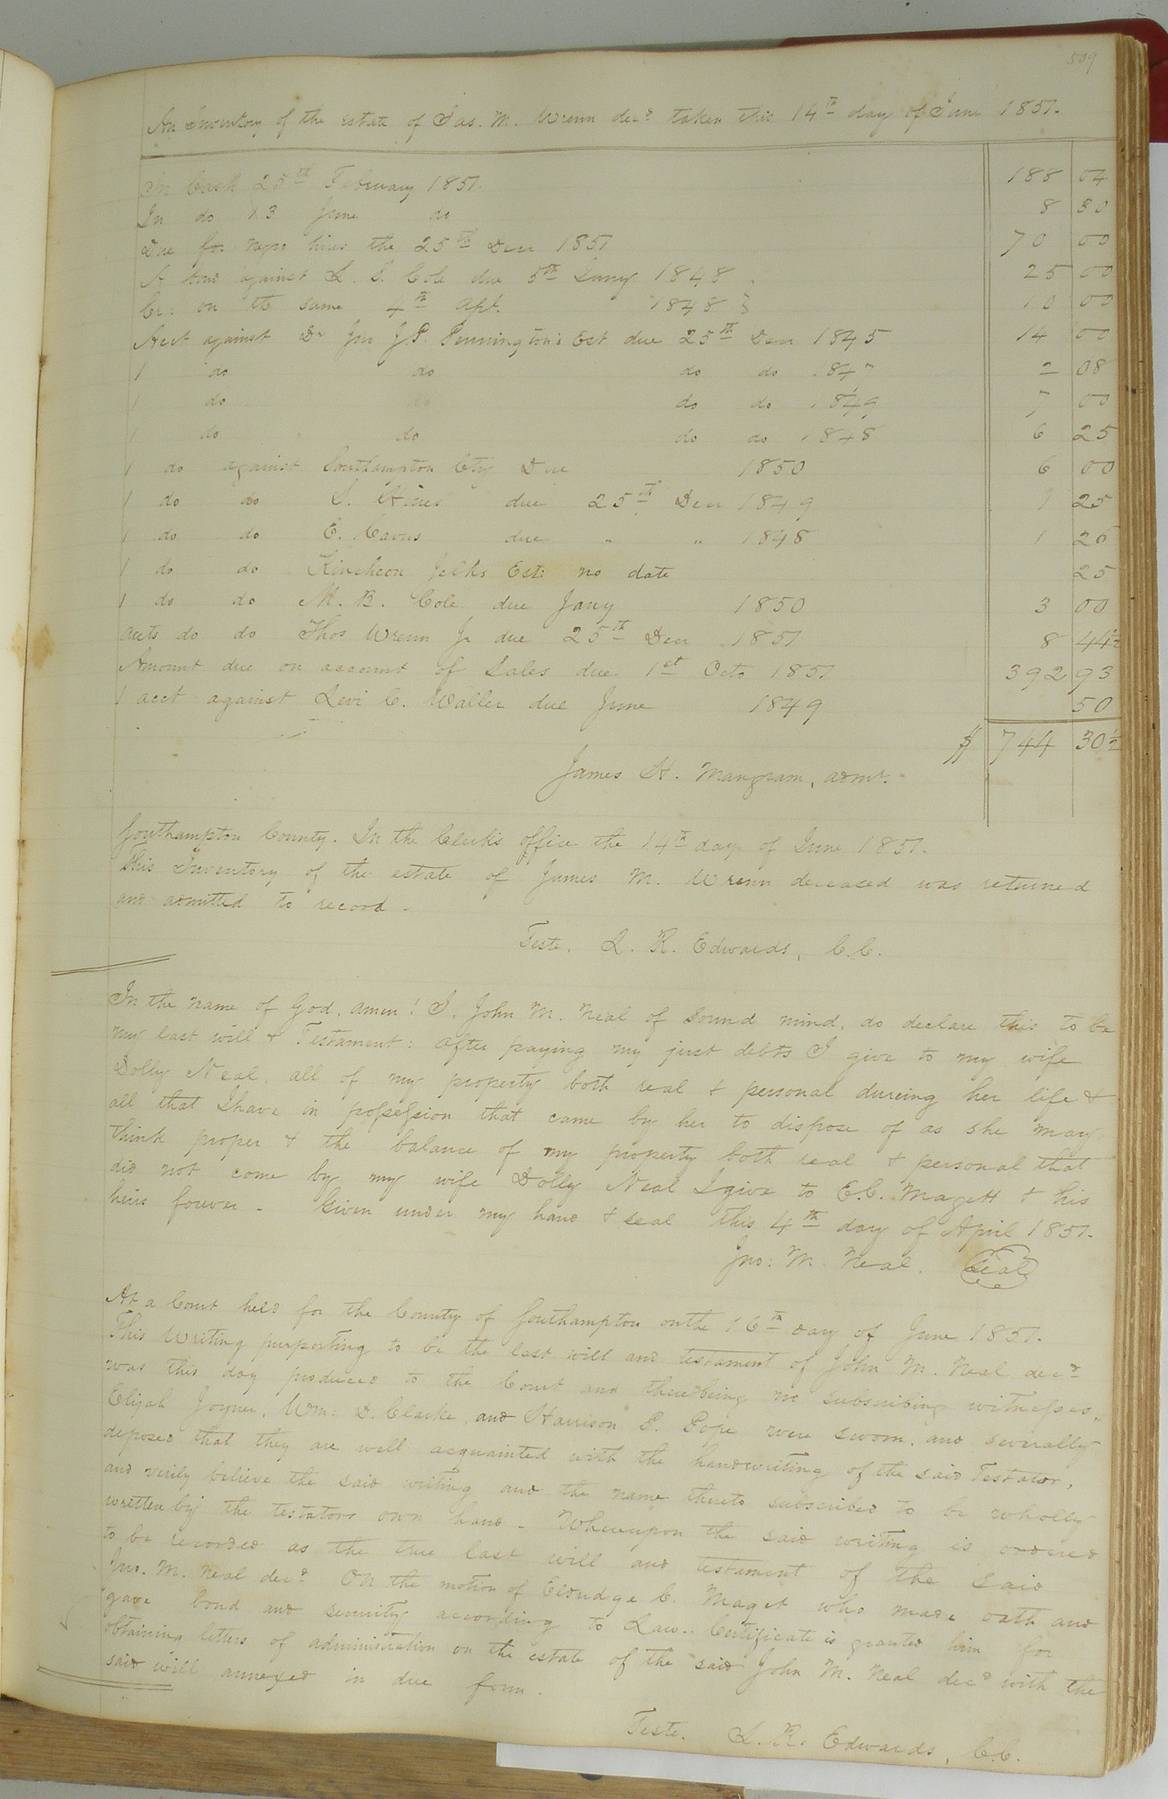 509
An Inventory of the estate of Jas. M. Wrenn decd. taken this 14th day of June 1851.
In Cash 25th February 1851. 188 04
In do 13 June do 8 30
Due for negro hires the 25th Decr 1851 70 00
A bond against L. S. Cole due 5th Jany 1848 25 00
Cr. on the same 4th Apl. 1848 } 10 00
Acct against Dr Jno J P. Pennington's Est due 25th Decr 1845 14 00
1 do do do do 1847 2 08
1 do do do do 1849 7 00
1 do do do do 1848 6 25
1 do against Southampton Cty Due 1850 6 00
1 do do S. Hines due 25th Decr 1849 1 25
1 do do E. due " " 1848 1 26
1 do do Kincheon Jelks Est: no date 25
1 do do M. B. Cole due Jany 1850 3 00
accts do do Thos Wrenn Jr due 25th Decr 1851 8 44½
Amount due on account of Sales due 1st Octo 1851 392 93
1 acct against Levi C. Waller due June 1849 50
$ 744 30½
James H. Mangram, admr.
Southampton County. In the Clerk's office the 14th day of June 1851.
This Inventory of the estate of James M. Wrenn deceased was returned
and admitted to record.
Teste. L. R. Edwards, C.C.
In the name of God, amen! I, John M. Neal of sound mind, do declare this to be
my last will & Testament: after paying my just debts I give to my wife
Dolly Neal, all of my property both real & personal dureing her life &
all that I have in possession that came by her to dispose of as she may
think proper & the balance of my property both real & personal that
did not come by my wife Dolly Neal I give to E.C. Magett & his
heirs forever - Given under my hand & seal this 4th day of April 1851.
Jno: M. Neal. Seal
At a Court held for the County of Southampton on the 16th day of June 1851.
This Writing purporting to be the last will and testament of John M. Neal decd
was this day produced to the Court and there being no subscribing witnesses,
Elijah Joyner, Wm: D. Clarke, and Harrison P. Pope were sworn, and severally
deposed that they are well acquainted with the handwriting of the said Testator,
and verily believe the said writing and the name thereto subscribed to be wholly
written by the testators own hand - Whereupon the said writing is ordered
to be recorded as the true last will and testament of the said
Jno. M. Neal decd. On the motion of Eldridge C. Maget who made oath and
gave bond and security according to Law. Certificate is granted him for
obtaining letters of administration on the estate of the said John M. Neal decd with the
said will annexed in due form.
Teste. L. R. Edwards, C.C.